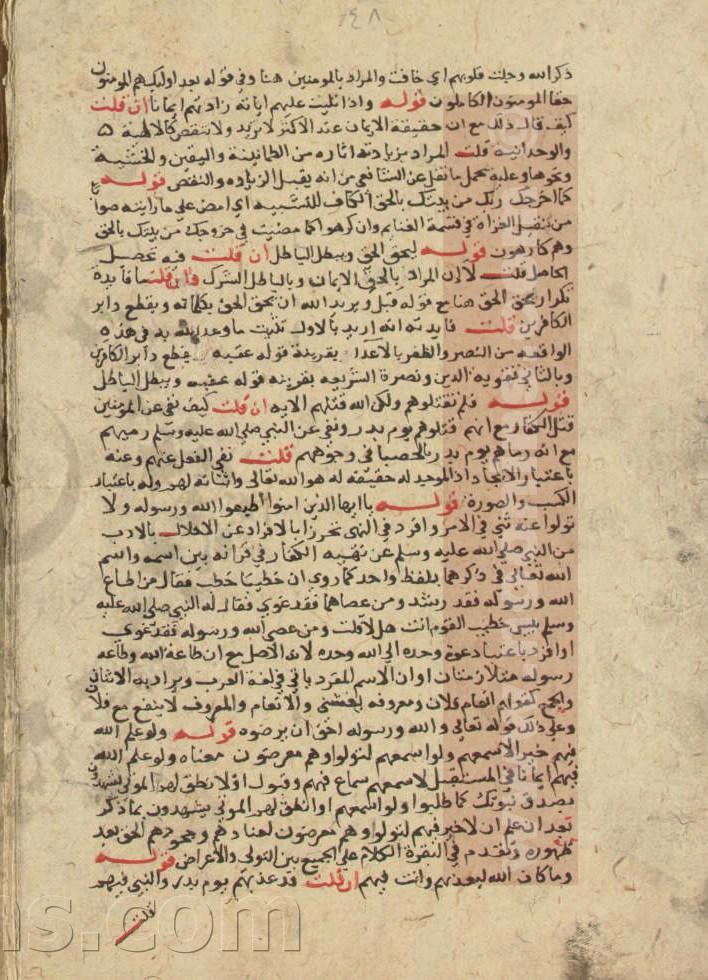 ٤٨
ذكر الله وجلت قلوبهم اي خافت والمراد بالمومنين هنا وفي قوله بعد اوليك هم المومنون
حقا المومنون الكاملون قوله واذا تليت عليهم اياته زادتهم ايمانا ان قلت
كيف قال ذلك مع ان حقيقة الايمان عند الاكثر لا تزيد ولا تنقص كالالهية
والوحدانية قلت المراد بزيادته اثاره من الطمانينة واليقين والخشية
ونحوها وعليه يحمل ما نقل عن الشافعي من انه يقبل الزياده والنقص قوله
كما اخرجك ربك من بيتك بالحق الكاف للتشبيه اي امض على ما رايته صوابا
من تنفيل الغزاة في قسمة الغنايم وان كرهوا كما مضيت في خروجك من بيتك بالحق
وهم كارهون قوله ليحق الحق ويبطل الباطل ان قلت فيه تحصيل
الحاصل قلت لا اذ المراد بالحق الايمان وبالباطل الشرك فان قلت ما فايدة
تكرار يحق الحق هنا مع قوله قبل ويريد الله ان يحق الحق بكلماته ويقطع دابر
الكافرين قلت فايدته انه اريد بالاول تثبيت ما وعد الله به في هذه
الواقعه من النصر والظفر بالاعدا بقرينة قوله عقبه ويقطع دابر الكافرين
وبالثاني تقويه الدين ونصرة الشريعه بقرينه قوله عقبه ويبطل الباطل
قوله فلم تقتلوهم ولكن الله قتلهم الايه ان قلت كيف نفي عن المومنين
قتل الكفار مع انهم قتلوهم يوم بدر ونفي عن النبي صلي الله عليه وسلم رميهم
مع انه رماهم يوم بدر بالحصبا في وجوههم قلت نفي الفعل عنهم وعنه
باعتبار الايجاد اذ الموجد له حقيقة له هو الله تعالي واثباته لهم وله باعتبار
الكسب والصورة قوله ياايها الذين امنوا اطيعوا الله ورسوله ولا
تولوا عنه ثني في الامر وافرد في النهي تحرزا بالافراد عن الاخلال بالادب
من النبي صلي الله عليه وسلم عن نهيه الكفار في قرانه بين اسمه واسم
الله تعالي في ذكرهما بلفظ واحد كما روي ان خطيبا خطب فقال من اطاع
الله ورسوله فقد رشد ومن عصاهما فقد غوي فقال له النبي صلي الله عليه
وسلم بيس خطيب القوم انت هل لا قلت ومن عصي الله ورسوله فقد غوي
او افرد باعتبار عودة وحده الي الله وحده لانه الاصل مع ان طاعة الله وطاعه
رسوله متلازمتان او ان الاسم المفرد ياتي في لغة العرب ويراد به الاثنان
والجمع كقولهم انعام فلان ومعروفه يغشني والانعام والمعروف لا ينفع مع فلان
وعلي ذلك قوله تعالي والله ورسوله احق ان يرضوه قوله ولو علم الله
فيهم خيرا لاسمعهم ولو اسمعهم لتولوا وهم معرضون معناه ولو علم الله
فيهم ايمانا في المستقبل لاسمعهم سماع فهم وقبول او لانطق لهم الموتي يشهدون
بصدق نبوتك كما طلبوا ولو اسمعهم او انطق لهم الموتي يشهدون بما ذكر
بعد ان علم ان لا خير فيهم لتولوا وهم معرضون لعنادهم وجحودهم الحق بعد
ظهوره وتقدم في البقرة الكلام علي الجمع بين التولي والاعراض قوله
وما كان الله ليعذبهم وانت فيهم ان قلت قد عذبهم يوم بدر والنبي فيهم
قلت
ns.com